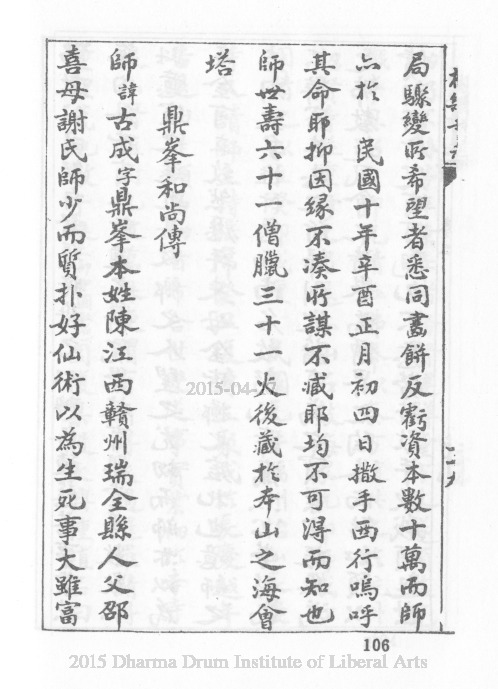 局驟變所希望者悉同畫餅反虧資本數十萬而師
亦於 民國十年辛酉正月初四日撒手西行嗚呼
其命耶抑因緣不湊所謀不臧耶均不可得而知也
師世壽六十一僧臘三十一火後藏於本山之海會
塔
鼎峯和尚傳
師諱古成字鼎峯本姓陳江西贛州瑞金縣人父邵
喜母謝氏師少而質朴好仙術以為生死事大雖富
2015-04-27
106
2015 Dharma Drum Institute of Liberal Arts